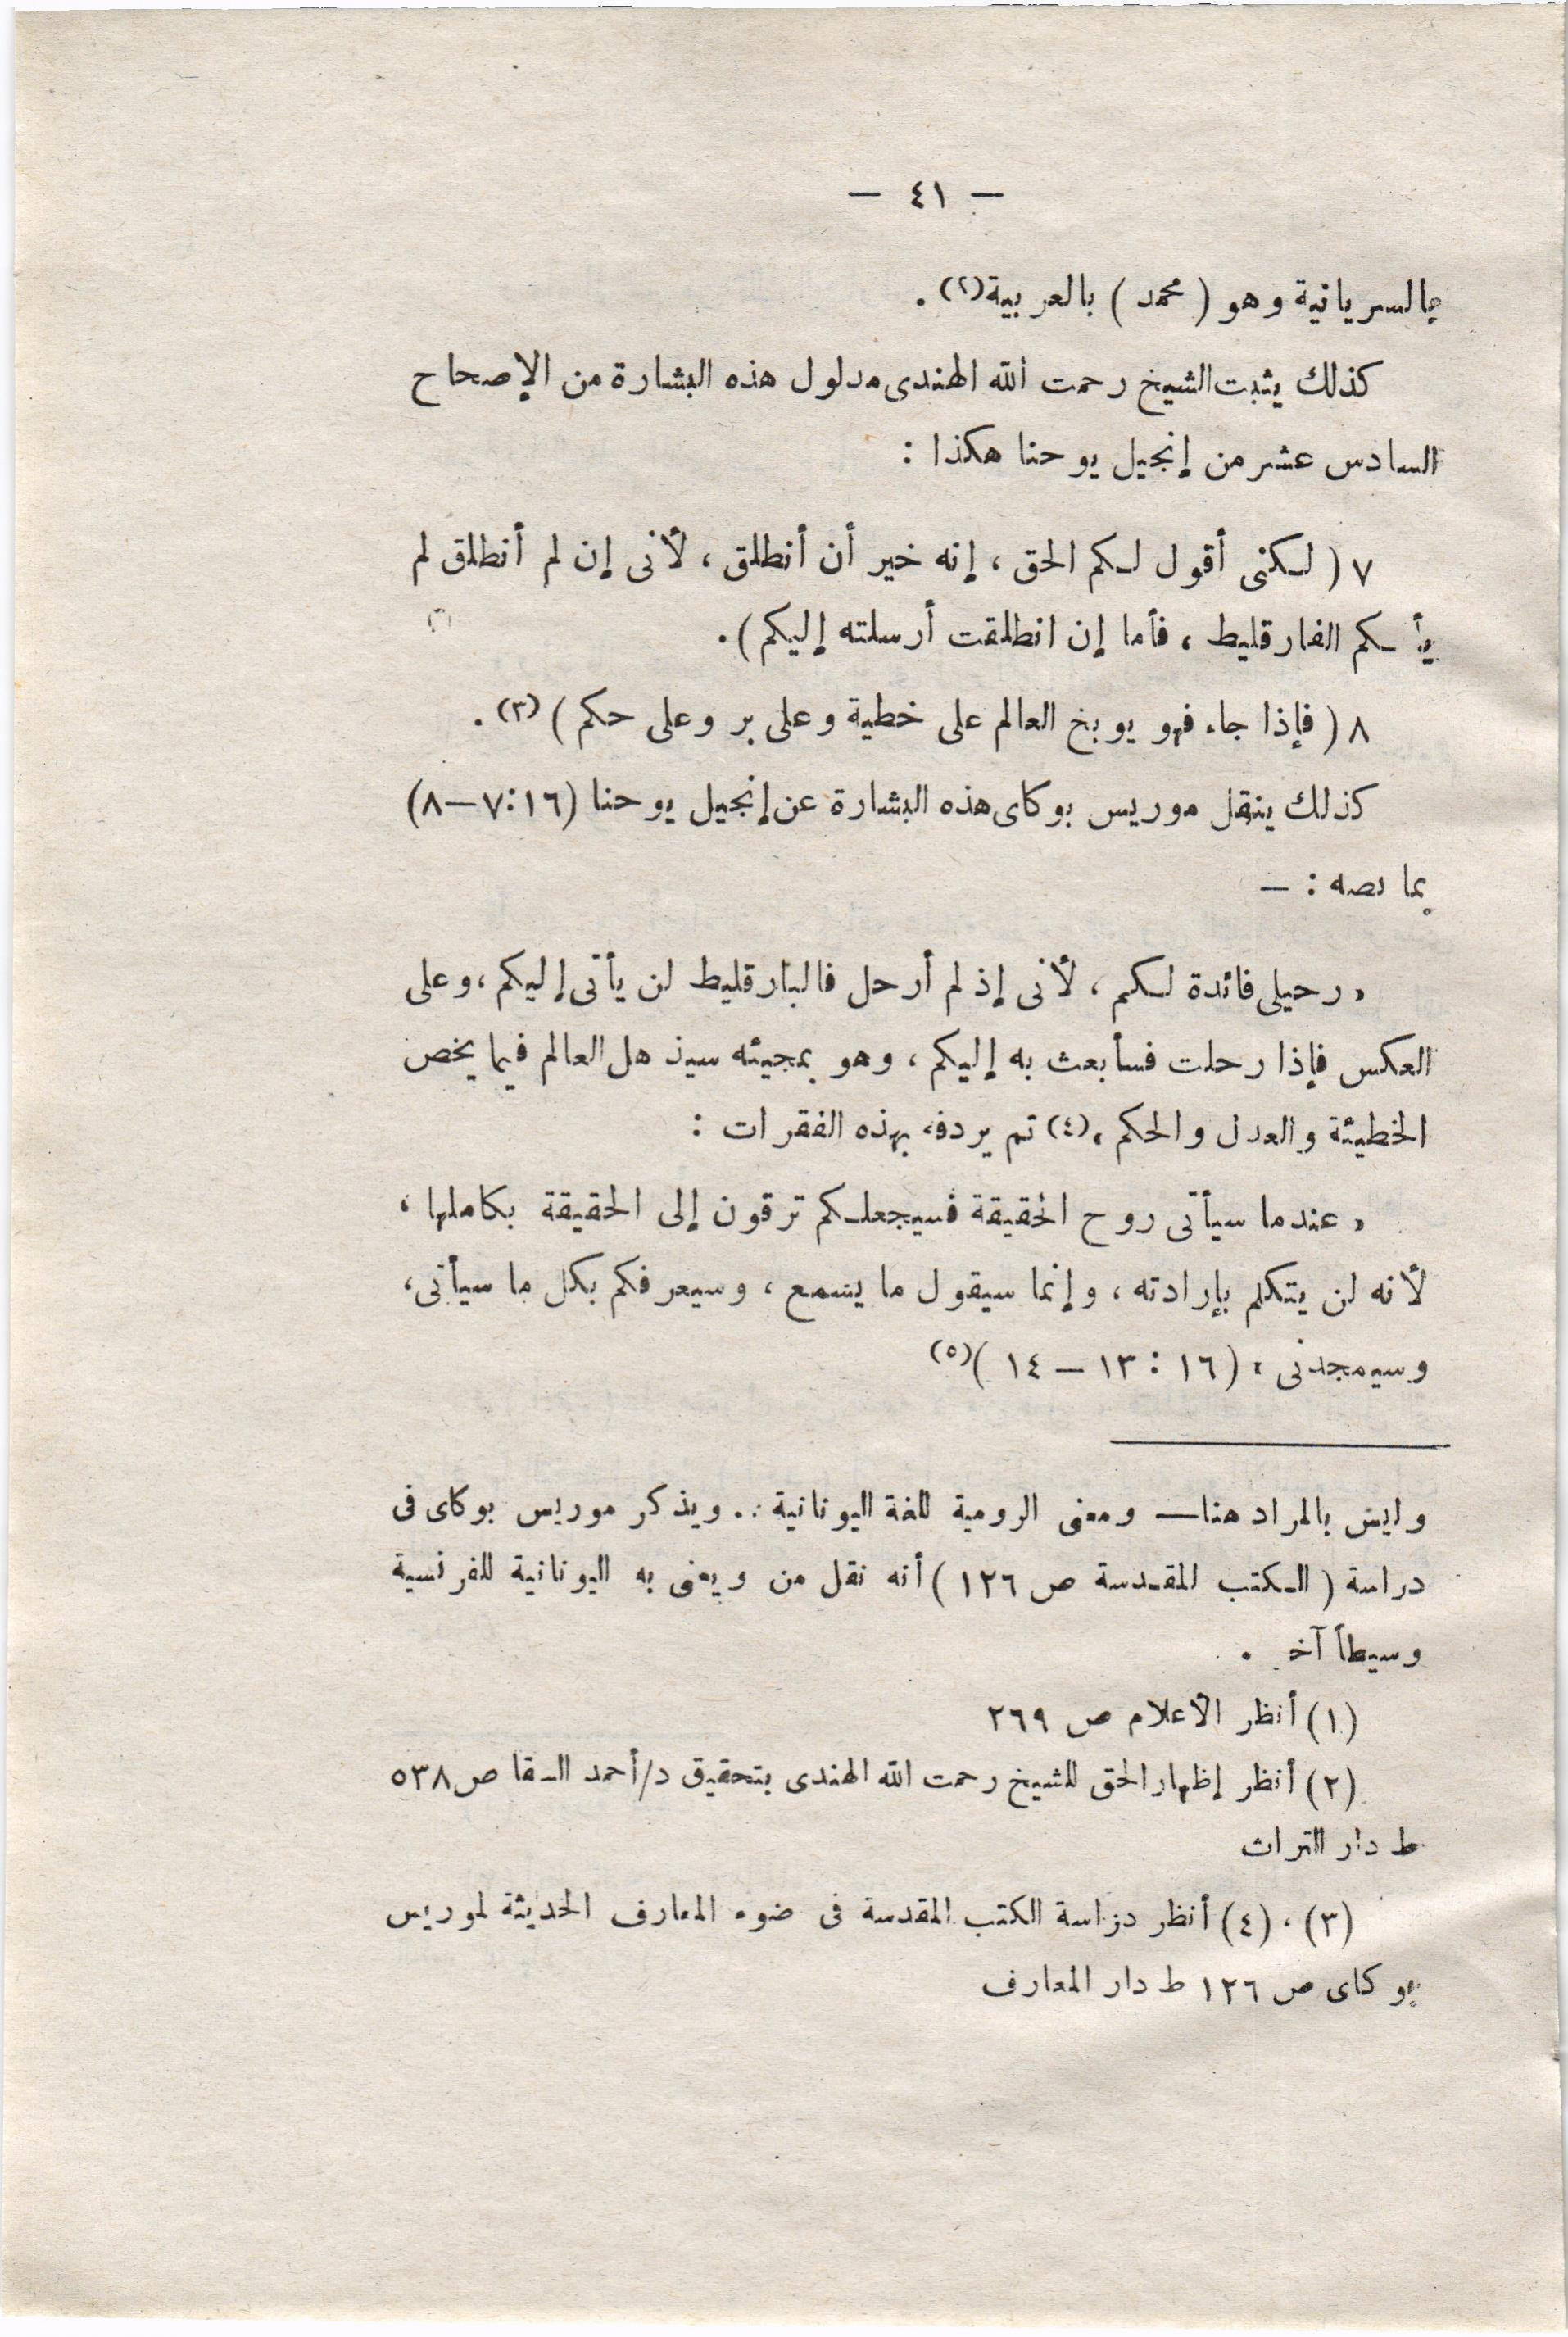 — ٤١ —
بالسريانية وهو ( محمد ) بالعربية(٢) .
كذلك يثبت الشيخ رحمت الله الهندى مدلول هذه البشارة من الإصحاح
السادس عشر من إنجيل يوحنا هكذا :
٧ ( لكنى أقول لكم الحق ، إنه خير أن أنطلق ، لأنى إن لم أنطلق لم
يأ كم الفارقليط ، فأما إن انطلقت أرسلته إليكم ) .
٨ ( فإذا جاء فهو يوبخ العالم على خطية وعلى بر وعلى حكم ) (٣) .
كذلك ينقل موريس بوكاى هذه البشارة عن إنجيل يوحنا (١٦:٧—٨)
بما نصه : —
« رحيلى فائدة لكم ، لأنى إذ لم أرحل فالبارقليط لن يأتى إليكم ، وعلى
العكس فإذا رحلت فسأبعث به إليكم ، وهو بمجيئه سيذ هل العالم فيما يخص
الخطيئة والعدل والحكم ،(٤) تم يردفه بهذه الفقرات :
« عندما سيأتى روح الحقيقة فسيجعلكم ترقون إلى الحقيقة بكاملها ،
لأنه لن يتكلم بإرادته ، وإنما سيقول ما يسمع ، وسيعرفكم بكل ما سيأتى ،
وسيمجدنى » ( ١٦ : ١٣ — ١٤ )(٥)
وليس بالمراد هنا— ومعنى الرومية للغة اليونانية .. ويذكر موريس بوكاى فى
دراسة ( الكتب المقدسة ص ١٢٦ ) أنه نقل من ويعنى به اليونانية للفرنسية
وسيطاً آخ .
(١) أنظر الأعلام ص ٢٦٩
(٢) أنظر إظهار الحق للشيخ رحمت الله الهندى بتحقيق د/أحمد السقا ص ٥٣٨
ط دار التراث
(٣) ، (٤) أنظر دراسة الكتب المقدسة فى ضوء المعارف الحديثة لموريس
بوكاى ص ١٢٦ ط دار المعارف